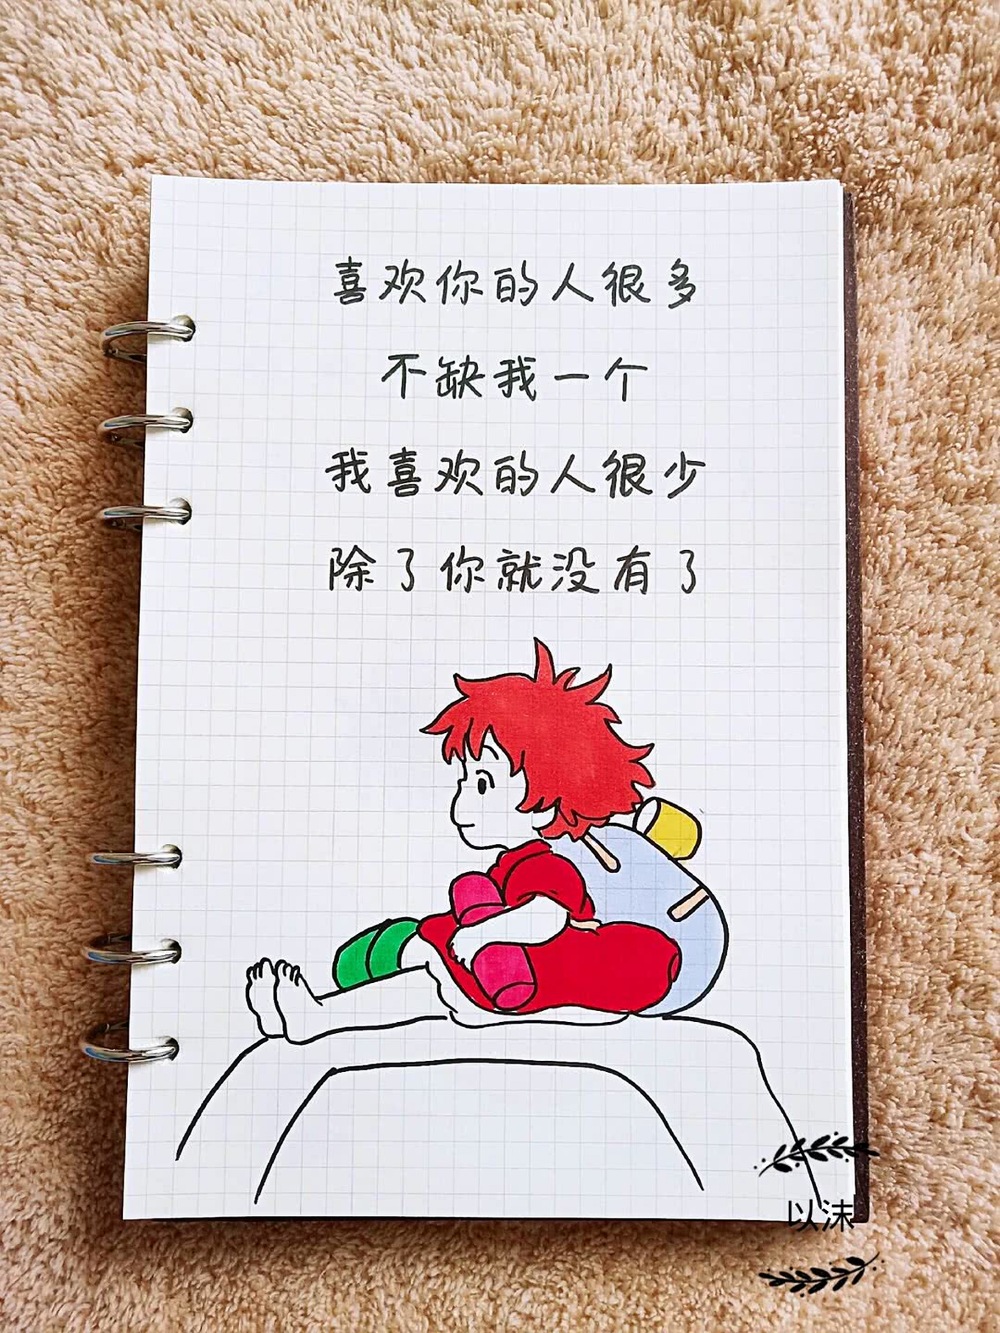 喜欢你的人很多
不缺我一个
我喜欢的人很少
除了你就没有了
以沫